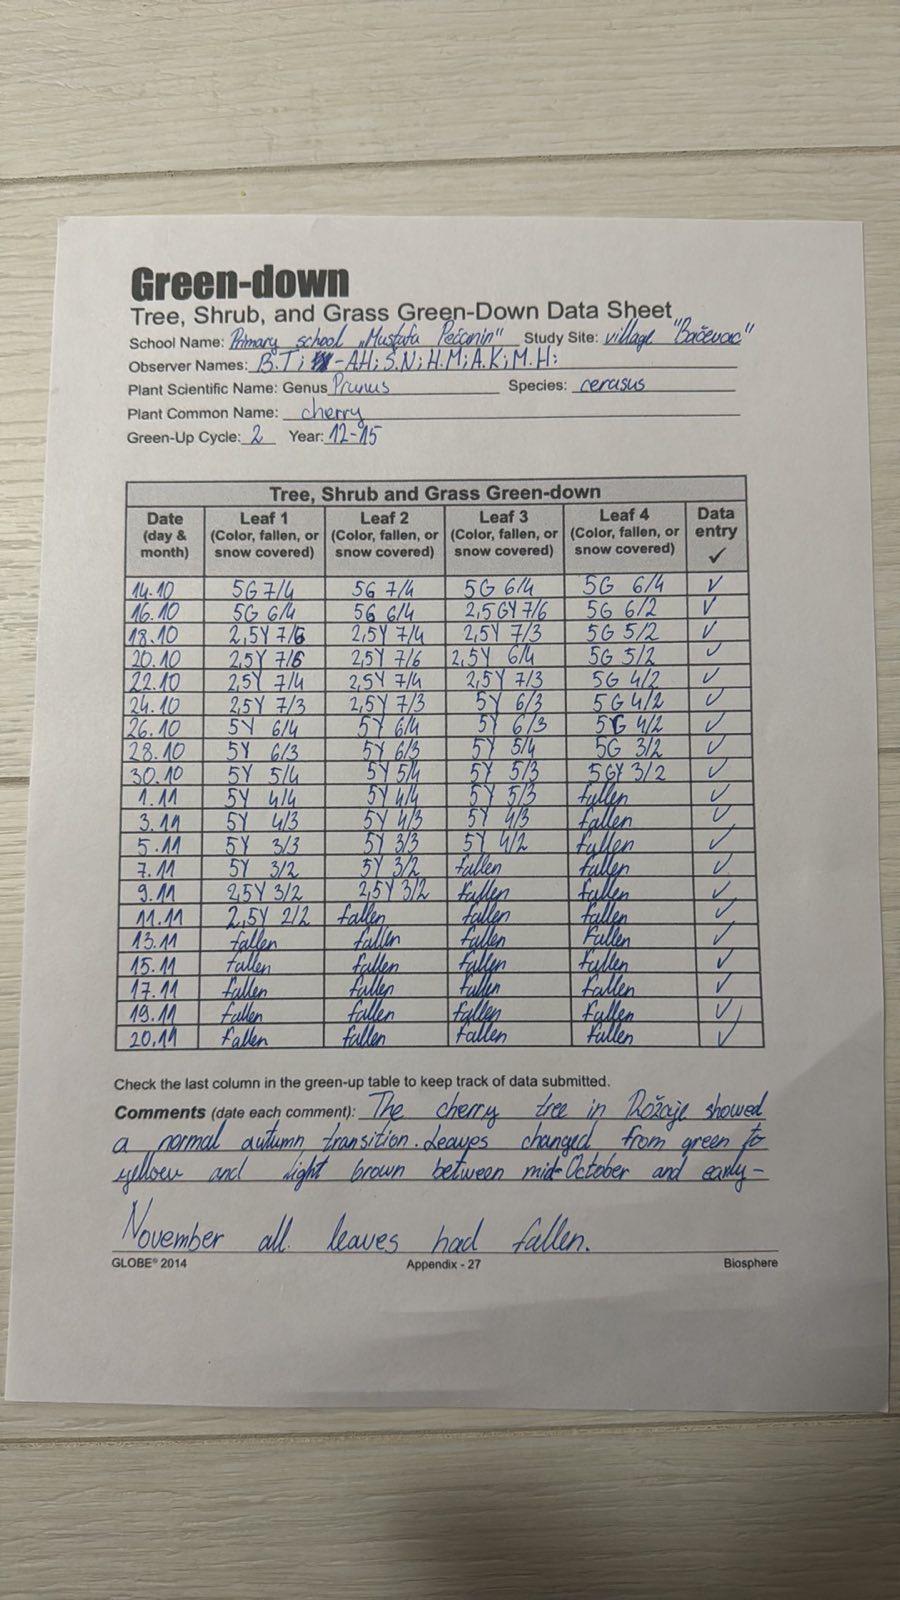 Green-down
Tree, Shrub, and Grass Green-Down Data Sheet
School Name: Primary school „Mustafa Pećanin" Study Site: village "Bačevac"
Observer Names: B.T; -A.H; S.N; H.M; A.K; M.H:
Plant Scientific Name: Genus Prunus Species: cerasus
Plant Common Name: cherry
Green-Up Cycle: 2 Year: 12-15
Tree, Shrub and Grass Green-down
Date (day & month) Leaf 1 (Color, fallen, or snow covered) Leaf 2 (Color, fallen, or snow covered) Leaf 3 (Color, fallen, or snow covered) Leaf 4 (Color, fallen, or snow covered) Data entry ✓
14.10 5G 7/4 5G 7/4 5G 6/4 5G 6/4 ✓
16.10 5G 6/4 5G 6/4 2,5GY 7/6 5G 6/2 ✓
18.10 2,5Y 7/6 2,5Y 7/4 2,5Y 7/3 5G 5/2 ✓
20.10 2,5Y 7/6 2,5Y 7/6 2,5Y 6/4 5G 5/2 ✓
22.10 2,5Y 7/4 2,5Y 7/4 2,5Y 7/3 5G 4/2 ✓
24.10 2,5Y 7/3 2,5Y 7/3 5Y 6/3 5G 4/2 ✓
26.10 5Y 6/4 5Y 6/4 5Y 6/3 5G 4/2 ✓
28.10 5Y 6/3 5Y 6/3 5Y 5/4 5G 3/2 ✓
30.10 5Y 5/4 5Y 5/4 5Y 5/3 5GY 3/2 ✓
1.11 5Y 4/4 5Y 4/4 5Y 5/3 fallen ✓
3.11 5Y 4/3 5Y 4/3 5Y 4/3 fallen ✓
5.11 5Y 3/3 5Y 3/3 5Y 4/2 fallen ✓
7.11 5Y 3/2 5Y 3/2 fallen fallen ✓
9.11 2,5Y 3/2 2,5Y 3/2 fallen fallen ✓
11.11 2,5Y 2/2 fallen fallen fallen ✓
13.11 fallen fallen fallen fallen ✓
15.11 fallen fallen fallen fallen ✓
17.11 fallen fallen fallen fallen ✓
19.11 fallen fallen fallen fallen ✓
20.11 fallen fallen fallen fallen ✓
Check the last column in the green-up table to keep track of data submitted.
Comments (date each comment): The cherry tree in Rožaje showed
a normal autumn transition. Leaves changed from green to
yellow and light brown between mid-October and early-
November all leaves had fallen.
GLOBE® 2014 Appendix - 27 Biosphere